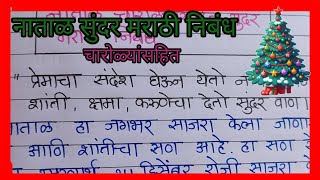 नाताळ सुंदर मराठी निबंध
चारोळ्यांसहित
" प्रेमाचा संदेश घेऊन येतो
शांती, क्षमा, करुणेचा देतो सुंदर वाण
नाताळ हा जगभर साजरा केला जाणा
आणि शांतीचा सण आहे. हा सण
डिसेंबर रोजी साजरा